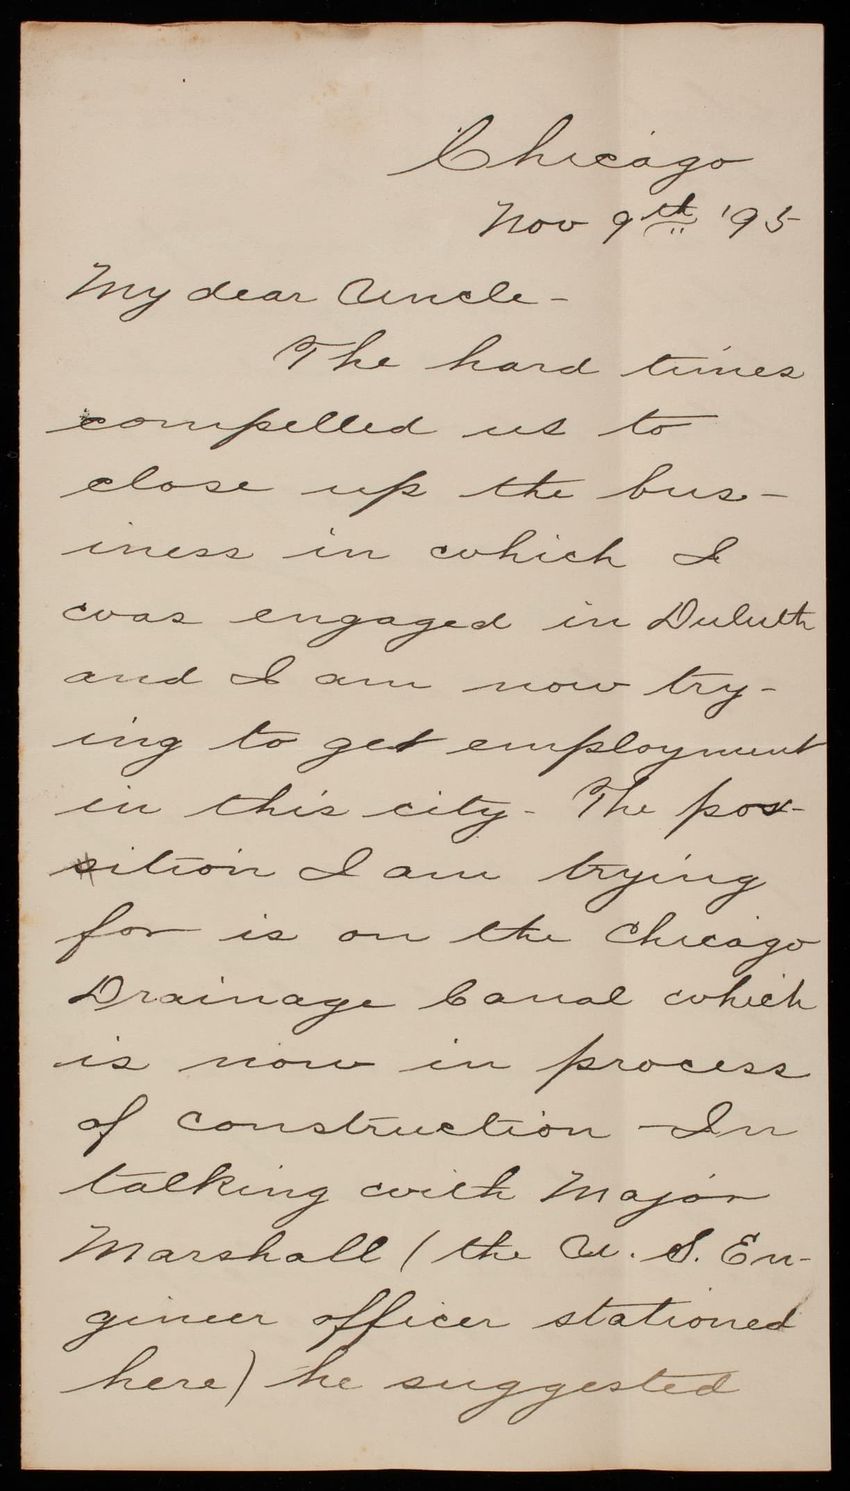 Chicago
Nov 9th '95
My dear Uncle -
The hard times
compelled us to
close up the bus-
iness in which I
was engaged in Duluth
and I am now try-
ing to get employment
in this city - The pos-
sition I am trying
for is on the Chicago
Drainage Canal which
is now in process
of construction - In
talking with Major
Marshall (the U. S. En-
gineer officer stationed
here) he suggested